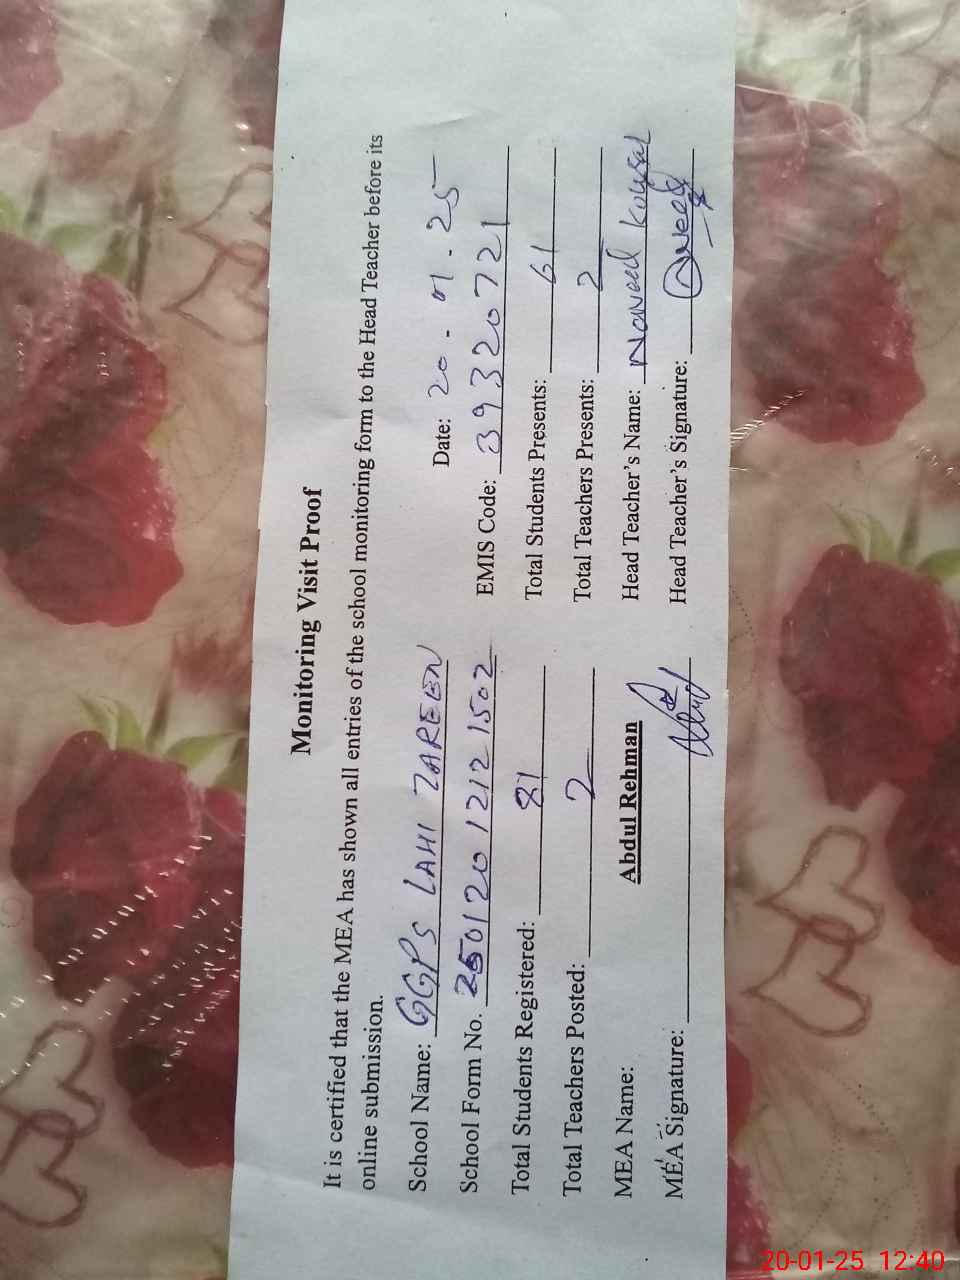 Monitoring Visit Proof
It is certified that the MEA has shown all entries of the school monitoring form to the Head Teacher before its
online submission.
School Name: GGPS LAHI ZAREEN Date: 20-01-25
School Form No. 250120 1212 1502 EMIS Code: 39320721
Total Students Registered: 81 Total Students Presents: 61
Total Teachers Posted: 2 Total Teachers Presents: 2
MEA Name: Abdul Rehman Head Teacher's Name: Naveed Kousar
MEA Signature: Head Teacher's Signature:
20-01-25 12:40